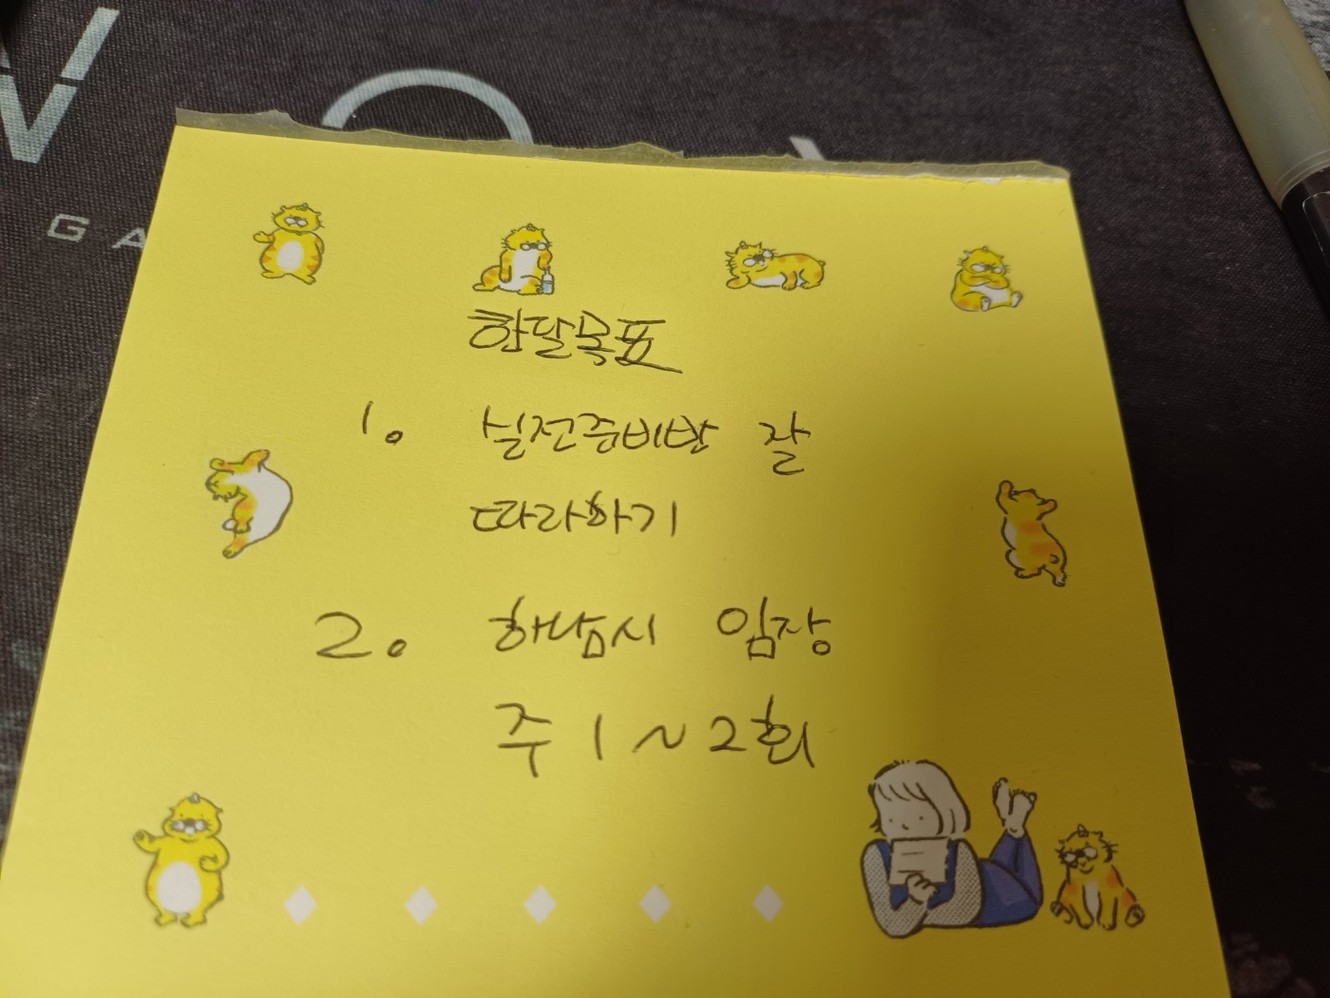 GA
한달목표
1. 실전준비반 잘
따라하기
2. 하남시 임장
주 1~2회